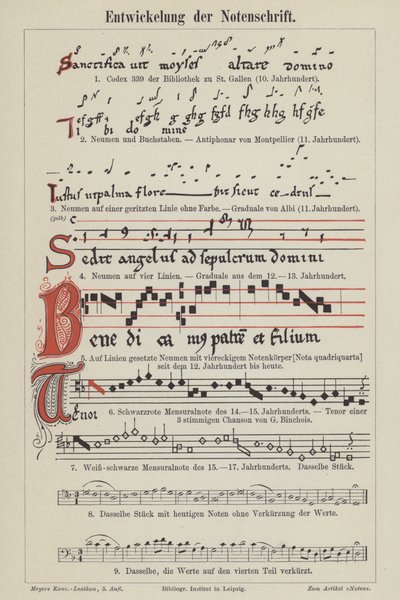 Entwickelung der Notenschrift.
Sanctificavit moyses altare domino
1. Codex 339 der Bibliothek zu St. Gallen (10. Jahrhundert).
Ti bi do mine
2. Neumen und Buchstaben. — Antiphonar von Montpellier (11. Jahrhundert).
Iustus ut palma flore bit sicut ce drus
3. Neumen auf einer geritzten Linie ohne Farbe. — Graduale von Albi (11. Jahrhundert).
(gelb) C
Sedit angelus ad sepulcrum domini
4. Neumen auf vier Linien. — Graduale aus dem 12.—13. Jahrhundert.
Bene di ca
et filium
5. Auf Linien gesetzte Neumen mit viereckigem Notenkörper [Nota quadriquarta]
seit dem 12. Jahrhundert bis heute.
Tenor
6. Schwarzrote Mensuralnote des 14.—15. Jahrhunderts. — Tenor einer
3 stimmigen Chanson von G. Binchois.
7. Weiß-schwarze Mensuralnote des 15.—17. Jahrhunderts. Dasselbe Stück.
8. Dasselbe Stück mit heutigen Noten ohne Verkürzung der Werte.
9. Dasselbe, die Werte auf den vierten Teil verkürzt.
Meyers Konv.-Lexikon, 5. Aufl.
Bibliogr. Institut in Leipzig.
Zum Artikel »Noten«.